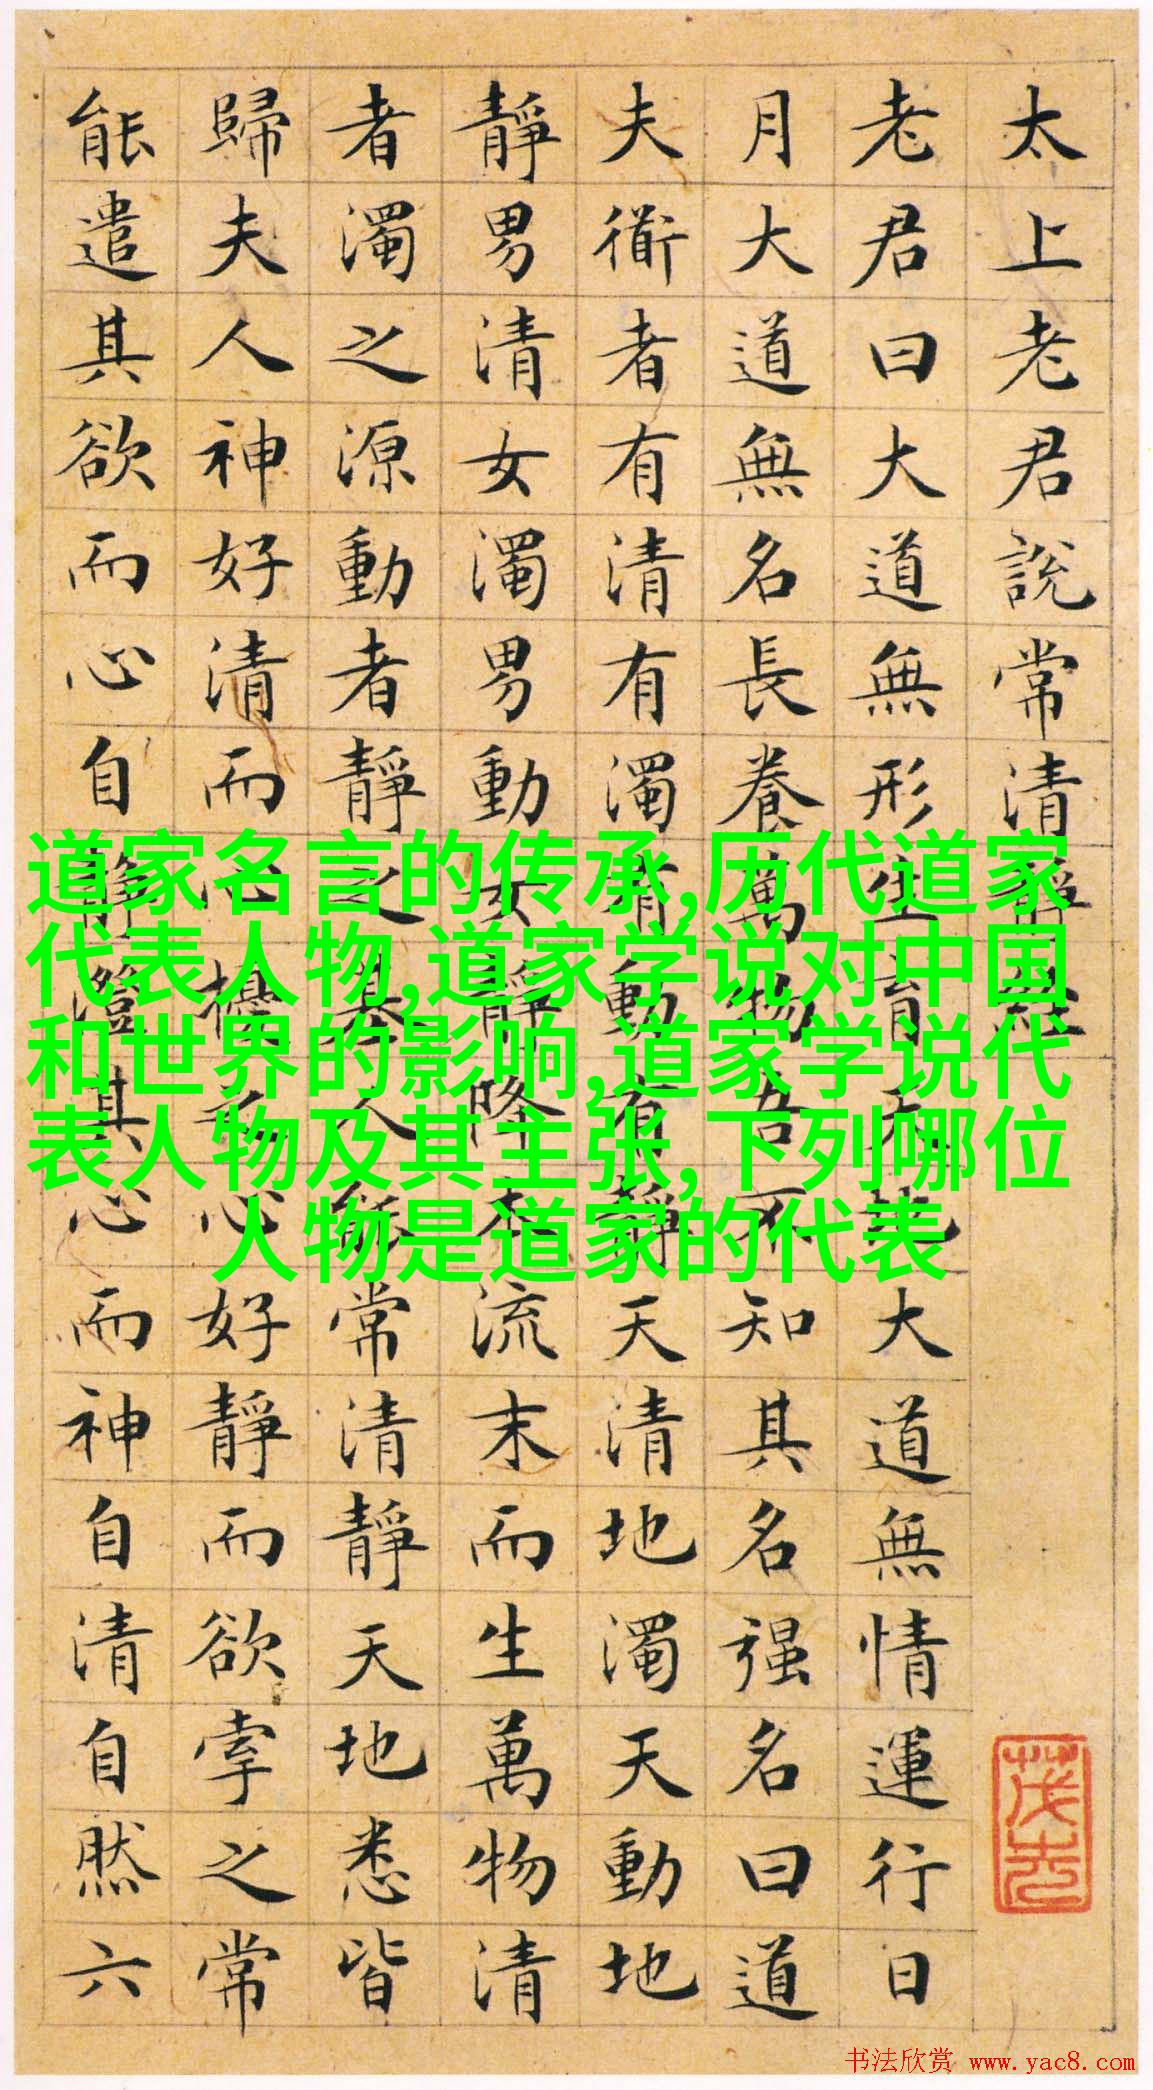 太上老君說常清靜經
老君曰大道無形生育天地大道無情運行日
月大道無名長養萬物吾不知其名强名曰道
夫衜者有清有濁有動有靜天清地濁天動地
靜男清女濁男動女靜降本流末而生萬物清
者濁之源動者靜之基人能常清靜天地悉皆
歸夫人神好清而心擾之心好靜而欲牽之常
能遣其欲而心自靜澄其心而神自清自然六
道家名言的传承,历代道家
代表人物,道家学说对中国
和世界的影响,道家学说代
表人物及其主张,下列哪位
人物是道家的代表
书法欣赏 www.yac8.com